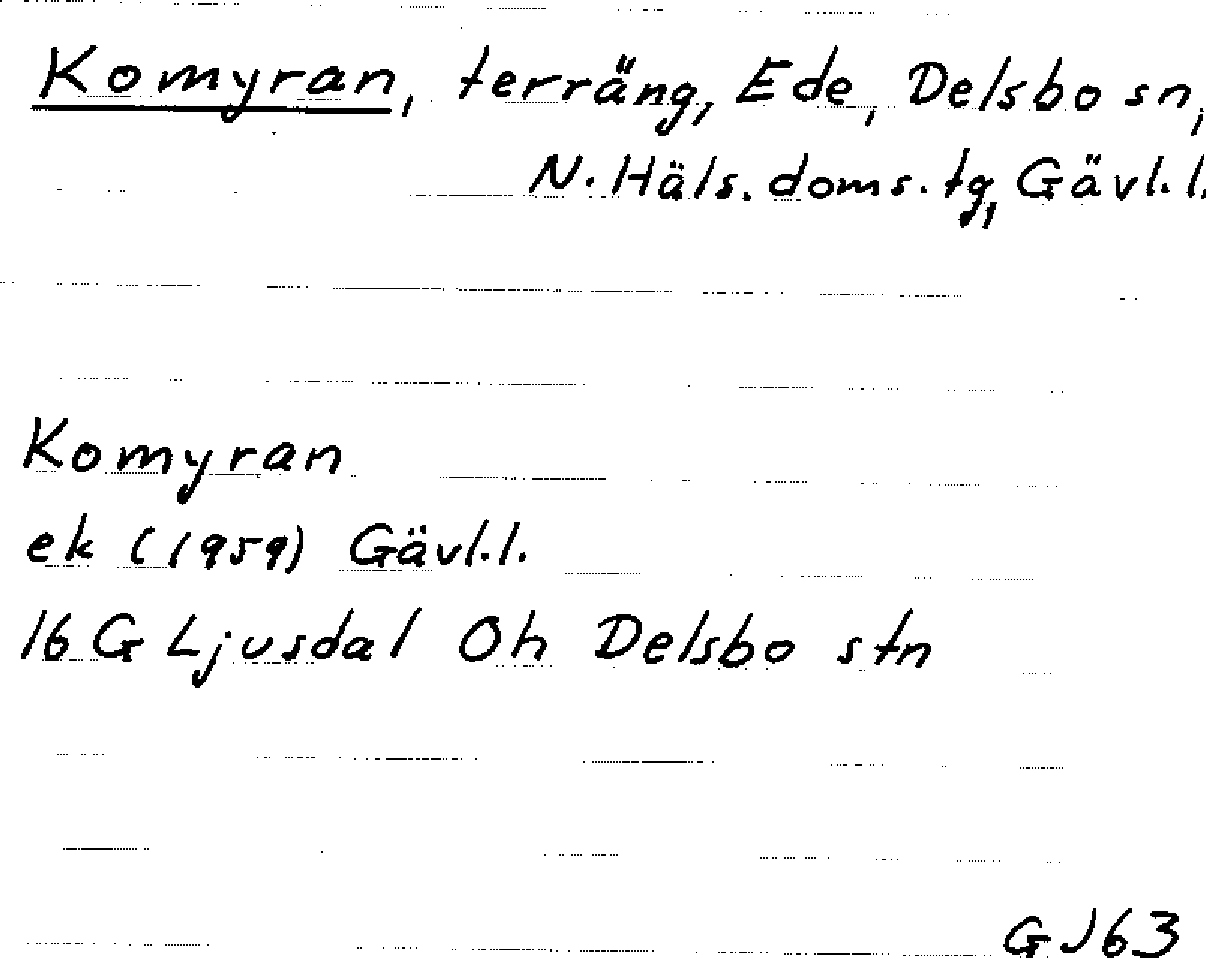 Komyran, terräng, Ede, Delsbo sn,
N. Häls. doms. tg, Gävl. l.
Komyran
ek (1959) Gävl. l.
16 G Ljusdal 0h Delsbo stn
GJ63